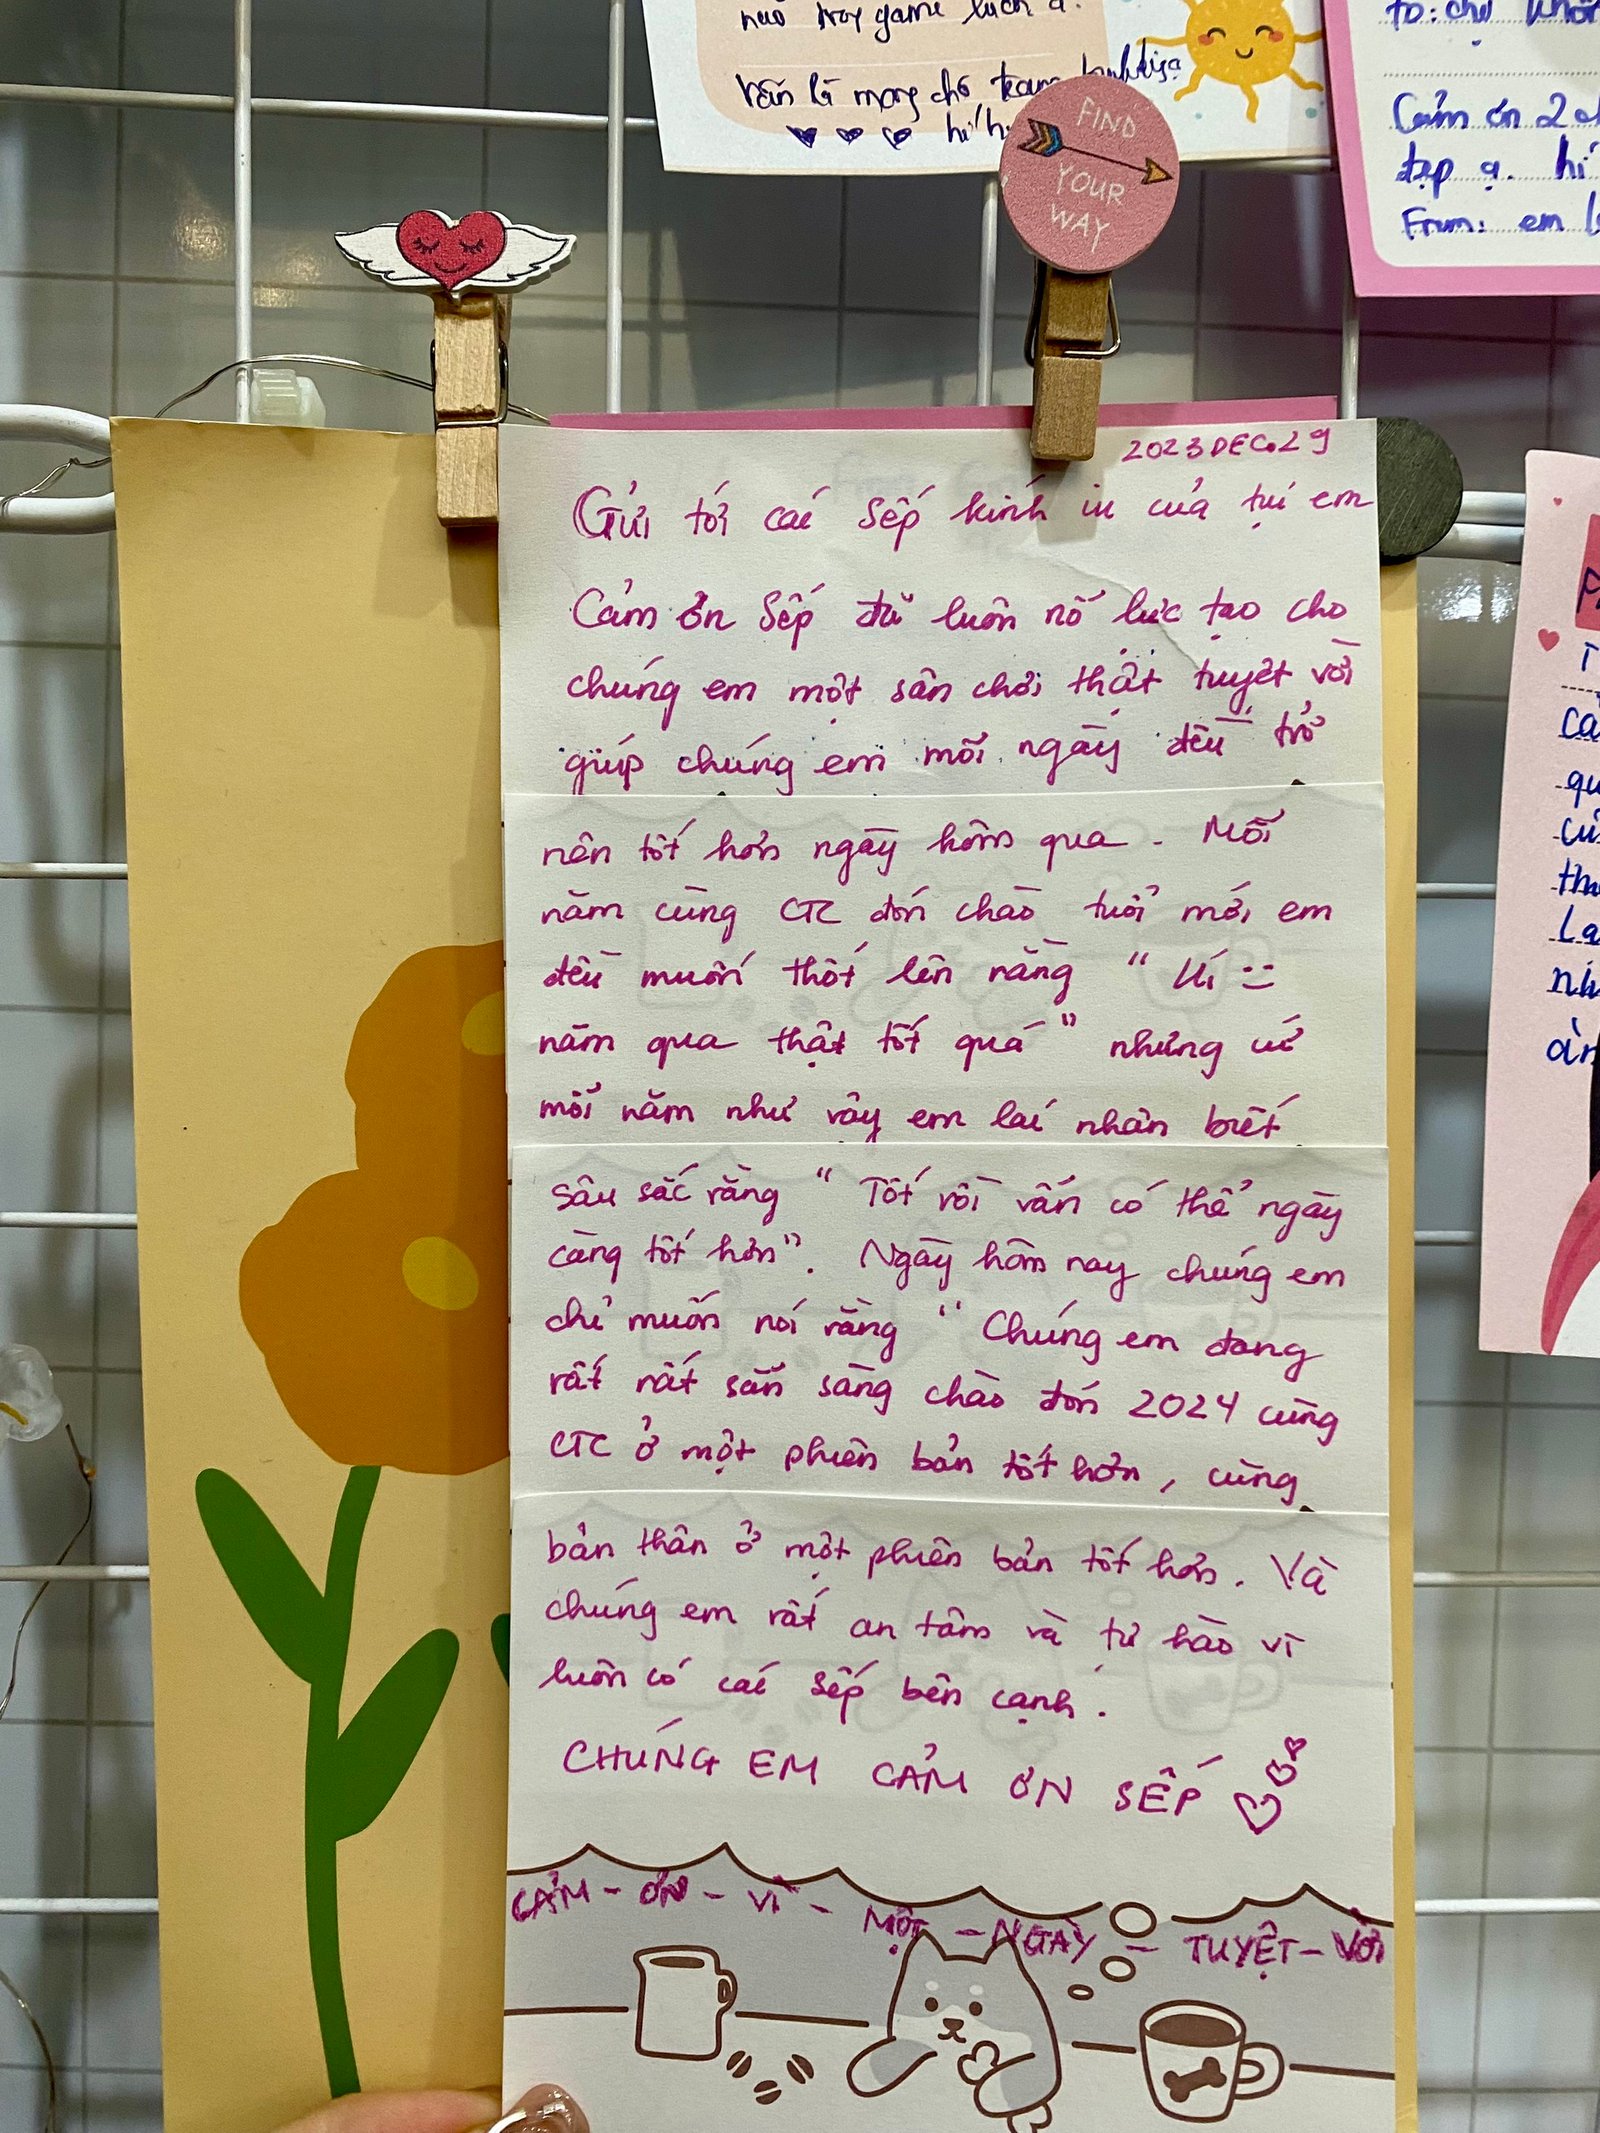 vẫn là mong chờ team
hi hi
FIND
YOUR
WAY
to: chị
Cảm ơn 2
đẹp ạ. hí
From: em
2023 DEC. 29
Gửi tới các Sếp kính iu của tụi em
Cảm ơn Sếp đã luôn nỗ lực tạo cho
chúng em một sân chơi thật tuyệt vời
giúp chúng em mỗi ngày đều trở
nên tốt hơn ngày hôm qua. Mỗi
năm cùng CTC đón chào tuổi mới em
đều muốn thốt lên rằng "Uí :)
năm qua thật tốt quá" nhưng cứ
mỗi năm như vậy em lại nhận biết
sâu sắc rằng "Tốt rồi vẫn có thể ngày
càng tốt hơn". Ngày hôm nay chúng em
chỉ muốn nói rằng "Chúng em đang
rất rất sẵn sàng chào đón 2024 cùng
CTC ở một phiên bản tốt hơn, cùng
bản thân ở một phiên bản tốt hơn. Và
chúng em rất an tâm và tự hào vì
luôn có các Sếp bên cạnh.
CHÚNG EM CẢM ƠN SẾP
CẢM - ƠN - VÌ - MỘT - NGÀY - TUYỆT - VỜI